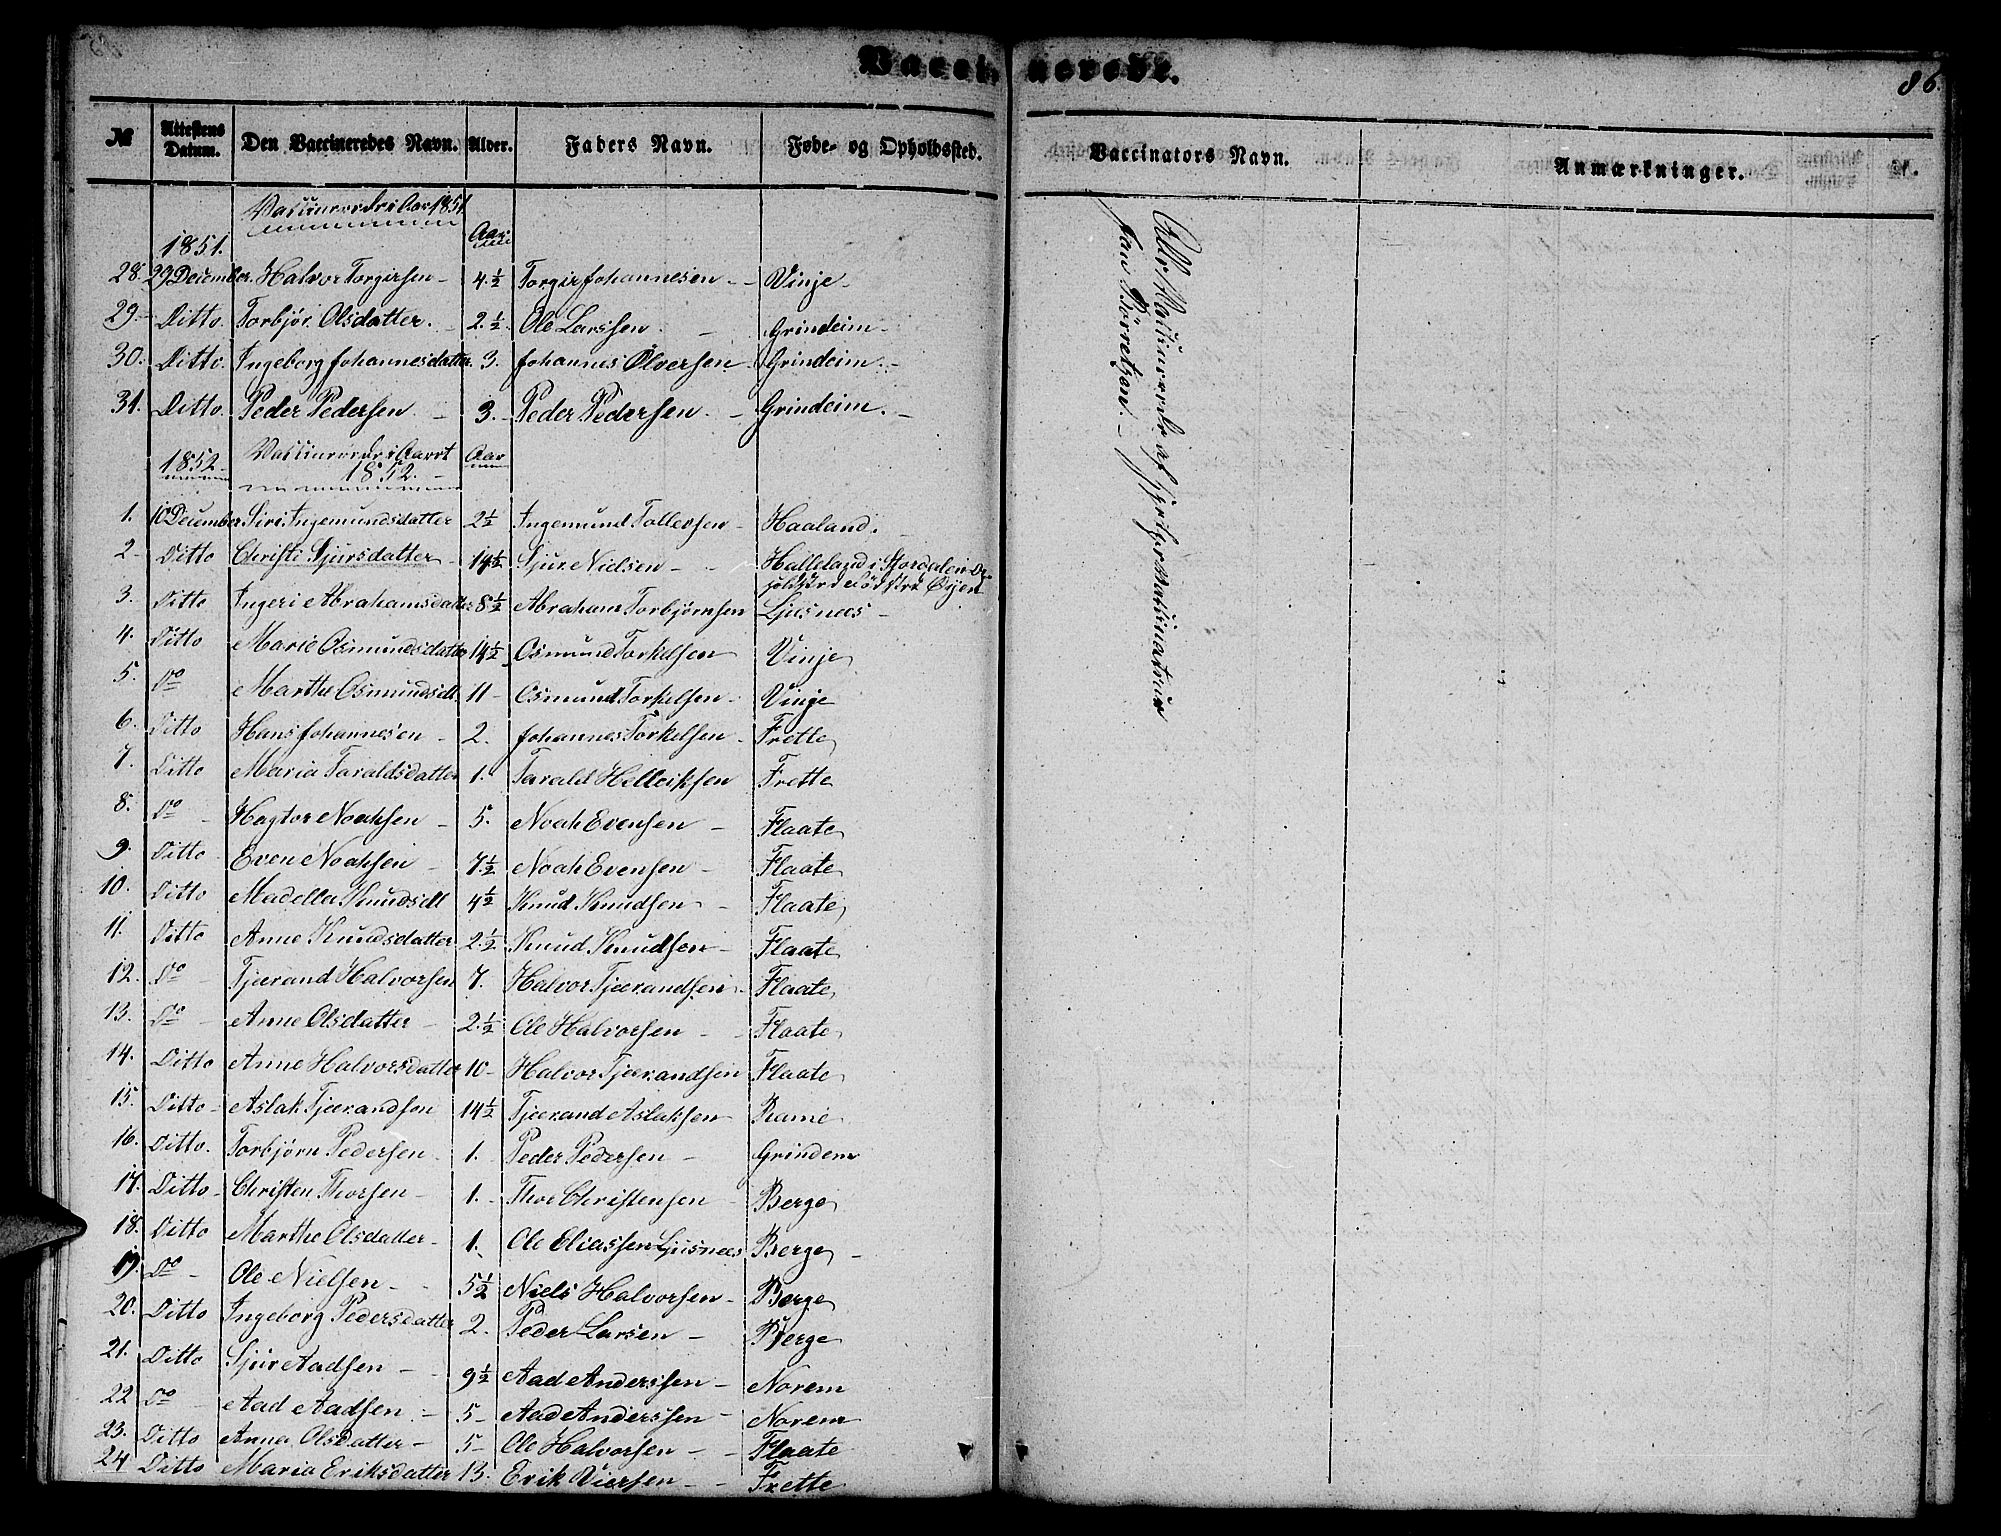 Vaccinerede.
86.
№ Attestens Datum. Den Vaccineredes Navn. Alder. Faders Navn. Føde- og Opholdssted. Vaccinators Navn. Anmærkninger.
Vaccinerede i Aar 1851
1851. Aar
28. 29 December. Halvor Torgirsen - 4 ½ Torgir Johannesen - Vinje -
29. - Ditto. Torbjør Olsdatter. - 2. ½ Ole Larssen. - Grindeim -
30. Ditto. Ingeborg Johannesdatter 3. Johannes Ølversen Grindeim. -
31. Ditto. Peder Pedersen - 3. - Peder Pedersen. - Grindeim. -
1852 - Vaccinerede i Aaret 1852. - Aar
1. 10 December Siri Ingemundsdatter 2 ½ Ingemund Tollevsen - Haaland.
2 - Ditto Christi Sjursdatter - 14 ½ Sjur Nielsen - - Halleland i Stordalen
Øyen
3. Ditto Ingeri Abrahamsdatter 8 ½ Abraham Torbjørnsen Ljusnæs -
4. Ditto Marie Osmundsdatter 14 ½ Osmund Torkelsen Vinje
5. Do Marthe Osmundsdt. 11 - Osmund Torkelsen - Vinje
6. Ditto Hans Johannesen - 2. Johannes Torkelsen - Frette
7. Ditto Maria Taraldsdatter 1. Tarald Helleiksen Frette
8. Do - Hagtor Noahsen - 5. Noah Evensen - Flaate
9. Ditto Even Noahsen - 7. ½ Noah Evensen - Flaate
10. Ditto Madella Knudsdt 4 ½ Knud Knudsen - Flaate
11. Ditto Anne Knudsdatter 2. ½ Knud Knudsen - Flaate
12. Do - Tjærand Halvorsen 7. Halvor Tjærandsen - Flaate
13. Do - Anne Olsdatter - 2. ½ Ole Halvorsen - - Flaate
14. Ditto Anne Halvorsdatter 10 - Halvor Tjærandsen Flaate
15. Ditto - Aslak Tjærandsen 14 ½ Tjærand Aslaksen - Rame
16. Ditto. Torbjørn Pedersen. 1. Peder Pedersen - Grindem
17. Ditto - Christen Thorsen - 1. - Thor Christensen - Berge
18. Ditto Marthe Olsdatter - 1. Ole Eliassen Ljusnæs Berge -
19. Do - Ole Nielsen - - 5 ½ Niels Halvorsen - Berge
20. Ditto Ingeborg Pedersdatter 2. Peder Larsen - Berge
21. Ditto Sjur Aadsen - 9 ½ Aad Anderssen - Norem
22 Do - Aad Aadsen. - 5 - Aad Anderssen - Norem
23. Ditto Anna Olsdatter - 5 - Ole Halvorsen - - Flaate
24 Ditto Maria Eriksdatter 13. Erik Viersen - - Frette
Alle Vaccinerede af Hjelpevaccinateur
Jan Børretzen. -